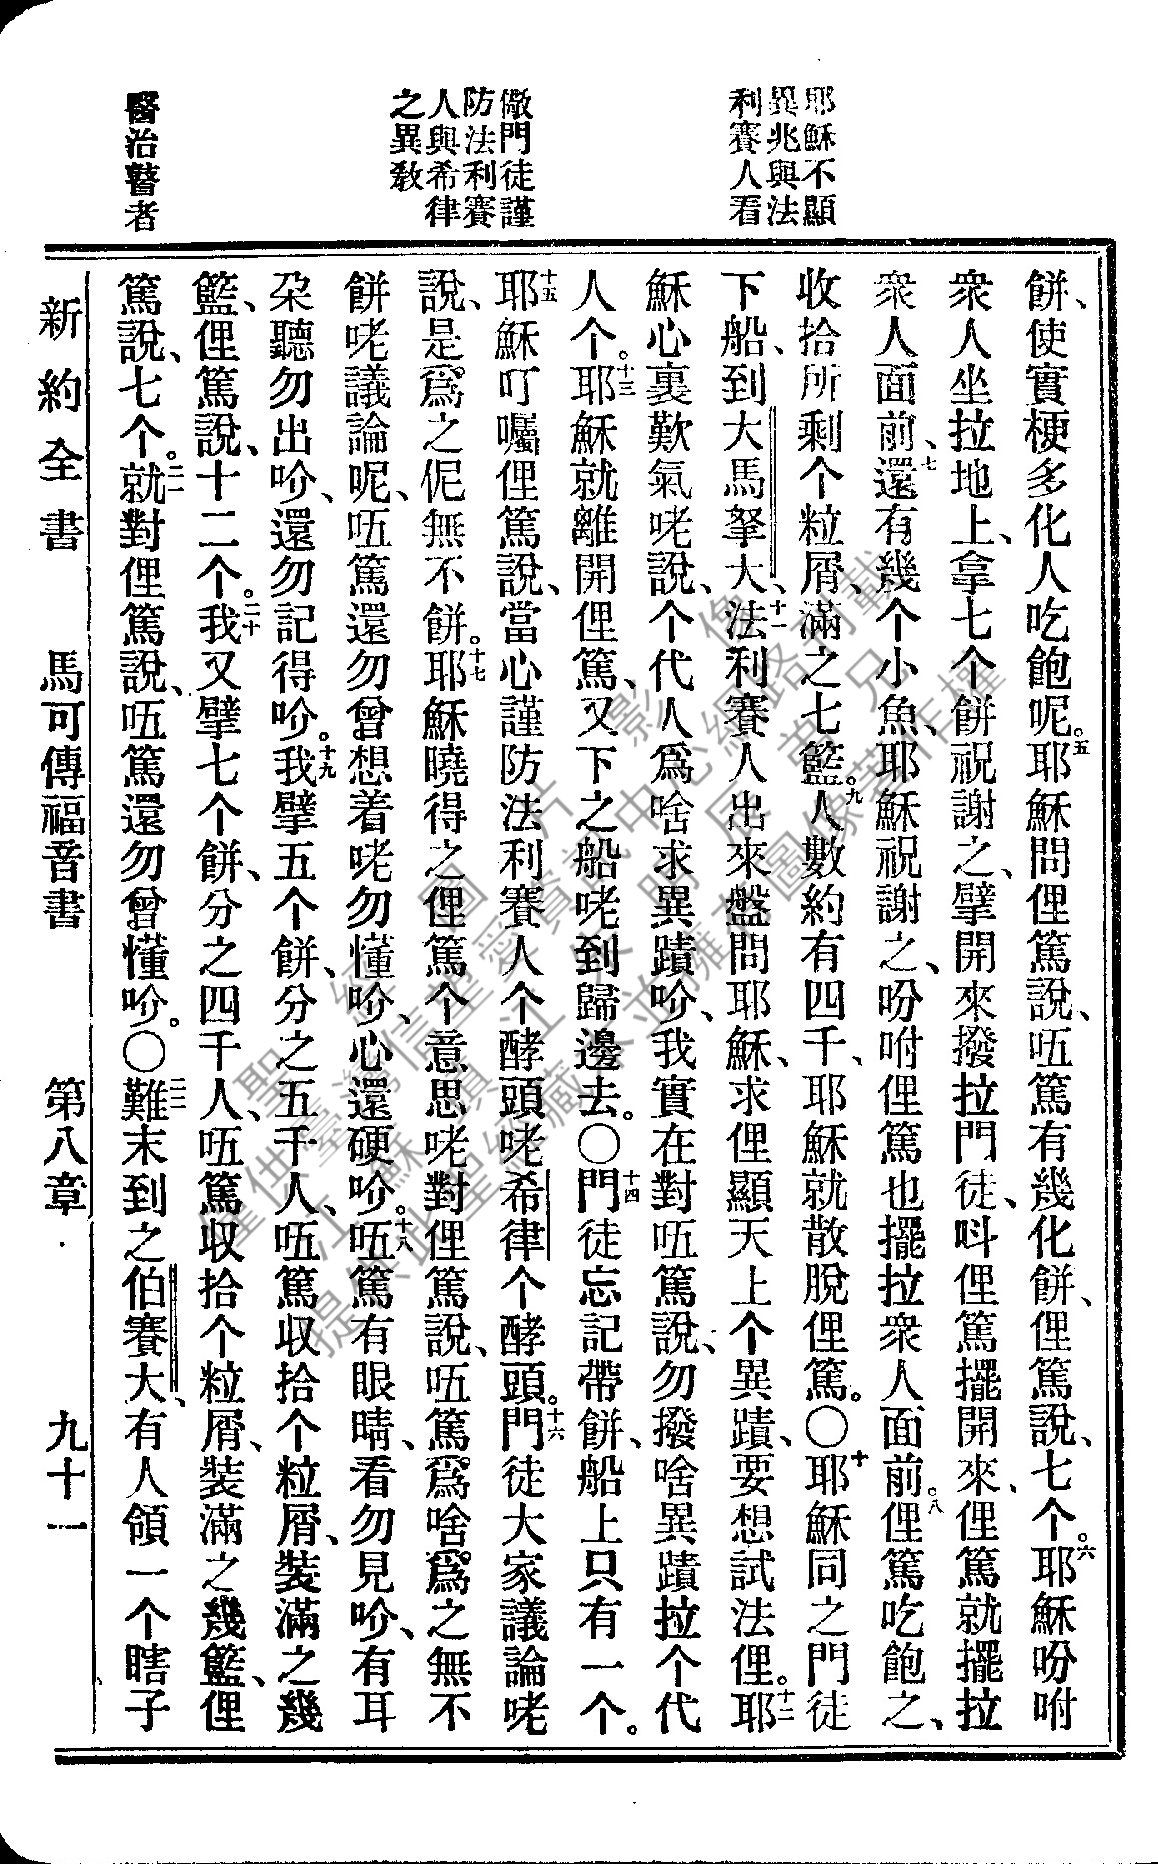 耶穌不顯
異兆與法
利賽人看
儆門徒謹
防法利賽
人與希律
之異教
醫治瞽者
餅、使實梗多化人吃飽呢。五耶穌問俚篤說、㕶篤有幾化餅、俚篤說、七个。六耶穌吩咐
衆人坐拉地上、拿七个餅祝謝之、擘開來撥拉門徒、呌俚篤擺開來、俚篤就擺拉
衆人面前、七還有幾个小魚、耶穌祝謝之、吩咐俚篤也擺拉衆人面前。八俚篤吃飽之、
收拾所剩个粒屑、滿之七籃。九人數約有四千、耶穌就散脫俚篤。〇十耶穌同之門徒
下船、到大馬拏大、十一法利賽人出來盤問耶穌、求俚顯天上个異蹟、要想試法俚。十二耶
穌心裏歎氣咾說、个代人爲啥求異蹟吤、我實在對㕶篤說、勿撥啥異蹟拉个代
人个。十三耶穌就離開俚篤、又下之船咾到歸邊去。〇十四門徒忘記帶餅、船上只有一个。
十五耶穌叮囑俚篤說、當心謹防法利賽人个酵頭咾希律个酵頭。十六門徒大家議論咾
說、是爲之伲無不餅。十七耶穌曉得之俚篤个意思咾對俚篤說、㕶篤爲啥爲之無不
餅咾議論呢、㕶篤還勿曾想着咾勿懂吤、心還硬吤。十八㕶篤有眼睛、看勿見吤、有耳
朶聽勿出吤、還勿記得吤。十九我擘五个餅、分之五千人、㕶篤收拾个粒屑、裝滿之幾
籃、俚篤說、十二个。二十我又擘七个餅、分之四千人、㕶篤收拾个粒屑、裝滿之幾籃、俚
篤說、七个。二一就對俚篤說、㕶篤還勿曾懂吤。〇二二難末到之伯賽大、有人領一个瞎子
新約全書 馬可傳福音書 第八章 九十一